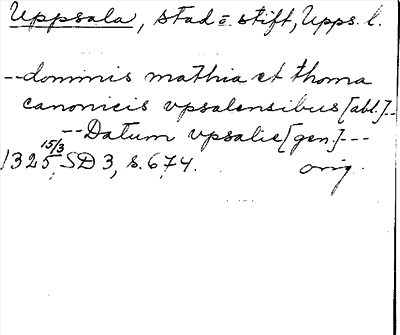 Uppsala, stad o. stift, Upps. l.
--dominis mathia et thoma
canonicis vpsalensibus [abl.]--
--Datum vpsalie [gen.]---
1325 15/3, SD 3, s. 674. orig.